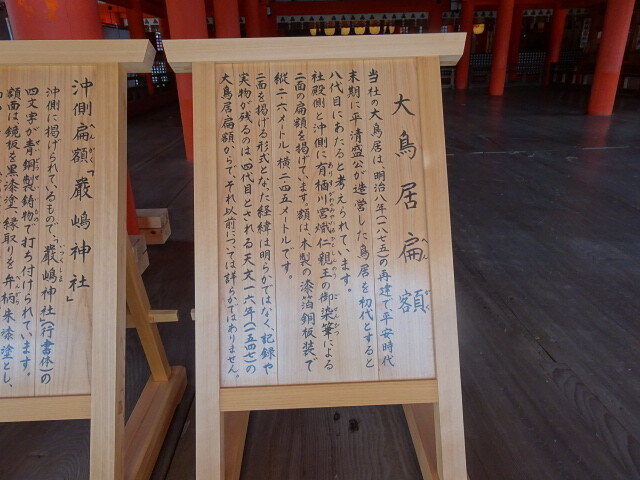 大鳥居扁額
へんがく
当社の大鳥居は、明治八年(一八七五)の再建で、平安時代
末期に平清盛公が造営した鳥居を初代とすると
八代目にあたると考えられています。
社殿側と沖側に有栖川宮熾仁親王の御染筆による
ありすがわのみやたるひとしんのう
ごせんぴつ
二面の扁額を掲げています。額は、木製の漆箔銅板装で
縦二.六メートル、横二.四五メートルです。
二面を掲げる形式となった経緯は明らかではなく、記録や
実物が残るのは、四代目とされる天文一六年(一五四七)の
大鳥居扁額からで、それ以前については詳らかではありません。
沖側扁額「嚴嶋神社」
へんがく
沖側に掲げられているもので、「嚴嶋神社」(行書体)の
四文字が青銅製鋳物で打ち付けられています。
額面は、鏡板を黒漆塗、縁取りを弁柄朱漆塗とし、
べんがら